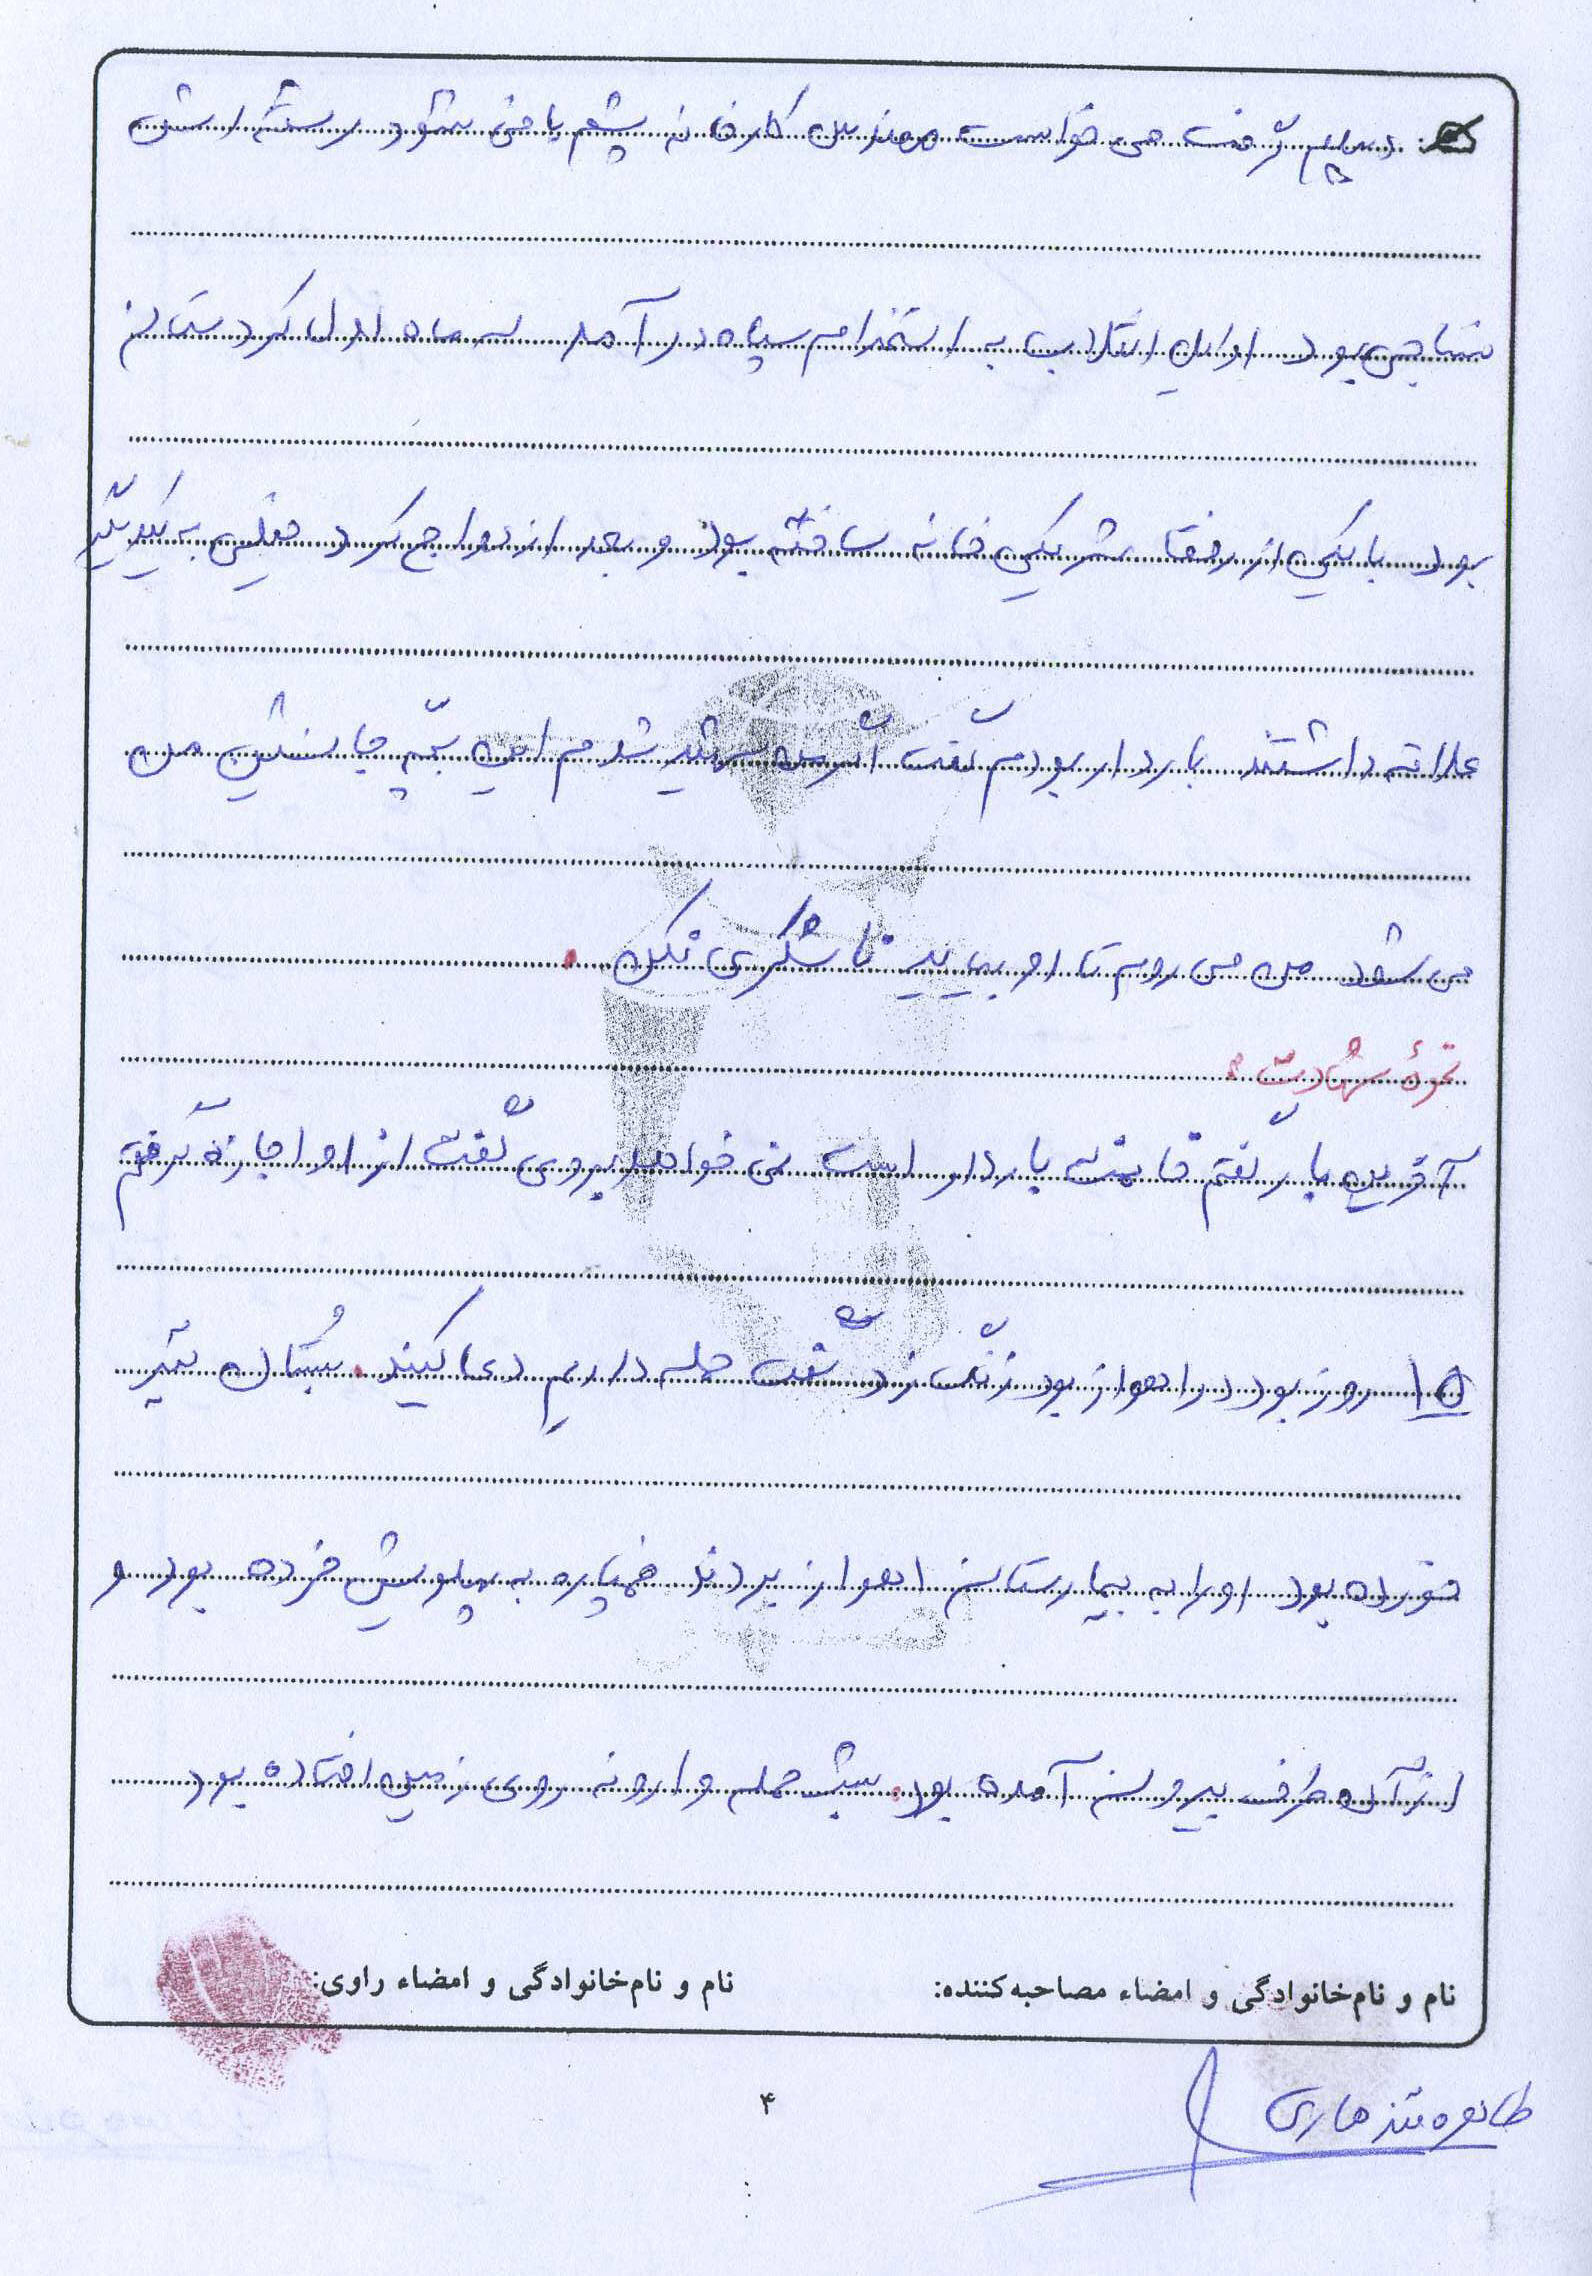 دیپلم گرفت می خواست مهندس کارخانه پشم بافی شود رشته اش
نساجی بود اوایل انقلاب به استخدام سپاه در آمد سه ماه اول کردستان
بود با یکی از رفقا شریکی خانه ساخته بود و بعد ازدواج کرد خیلی به یکدیگر
علاقه داشتند باردار بودم گفت اگر من شهید شدم این بچه جانشین من
می شود من می روم تا او بیاید ناشکری نکن .
نحوۀ شهادت :
آخرین بار گفتم خانمت باردار است نمی خواهد بروی گفت از او اجازه گرفتم
۱۵ روز بود در اهواز بود زنگ زد گفت حمله داریم دعا کنید . سُبتان تیر
خورده بود او را به بیمارستان اهواز بردند خمپاره به پهلویش خرده بود و
از آن طرف بیرون آمده بود . شب حمله وارونه روی زمین افتاده بود
نام و نام‌خانوادگی و امضاء مصاحبه‌کننده: نام و نام‌خانوادگی و امضاء راوی:
طاهره
۴